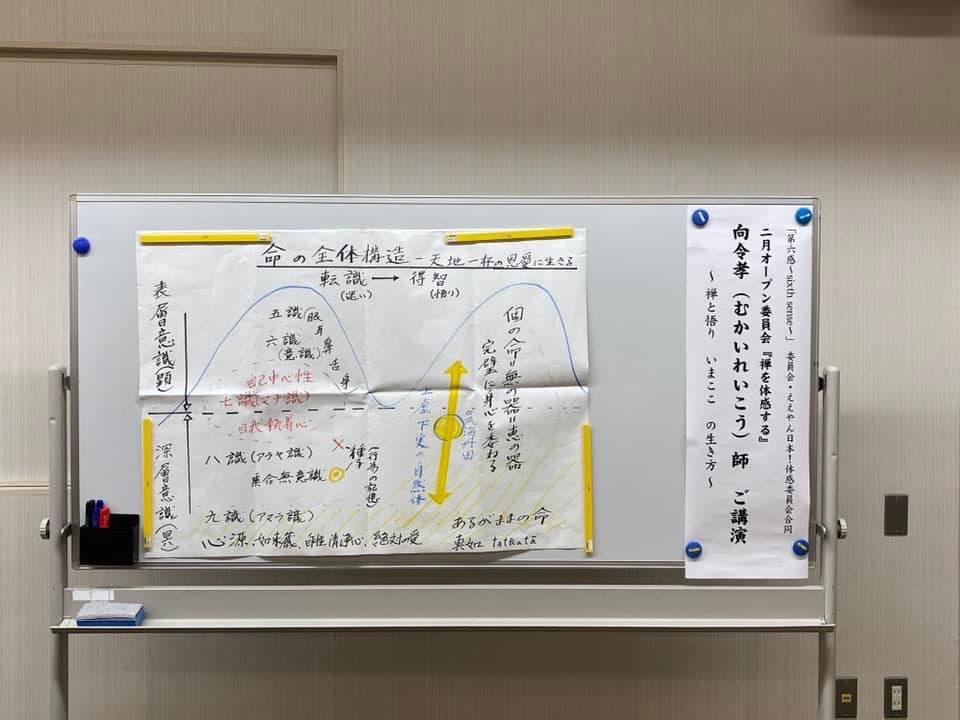 命の全体構造 - 天地一杯の恩愛に生きる
転識 → 得智
(迷い) (悟り)
表層意識(顕)
深層意識(冥)
五識(眼耳鼻舌身
六識
(意識)
自己中心性
七識(マナ識)
自我執着心
八識(アラヤ識)
集合無意識
種子
(行為の記憶)
九識(アマラ識)
心源、如来蔵、自性清浄心、絶対愛
個の命=無の器=恵の器
完璧に身心を委ねる
気海丹田
上虚下実の自然体
あるがままの命
真如 tatnata
「第六感~sixth sense~」 委員会・ええやん日本!体感委員会合同
二月オープン委員会『禅を体感する』
向令孝(むかいれいこう)師 ご講演
~禅と悟り いまここ の生き方~